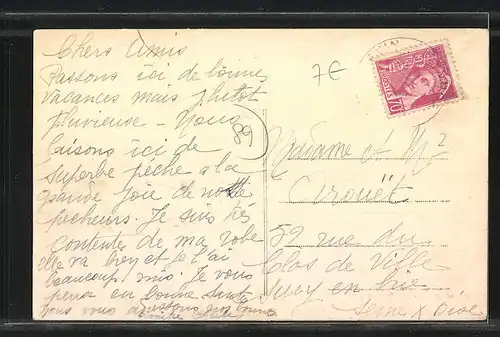 Chers Amis
Passons ici de bonnes
vacances mais plutot
pluvieuse - Nous
faisons ici de
superbe pêche a la
grande joie de notre
pecheurs. Je suis très
contente de ma robe
elle va bien et je l'ai
beaucoup mis. Je vous
pense en bonne santé
nous vous
7€
89
POSTES 70
Madame et Mr
Arouët
59 rue du
Clos de Ville
Sucy en brie
Seine & Oise